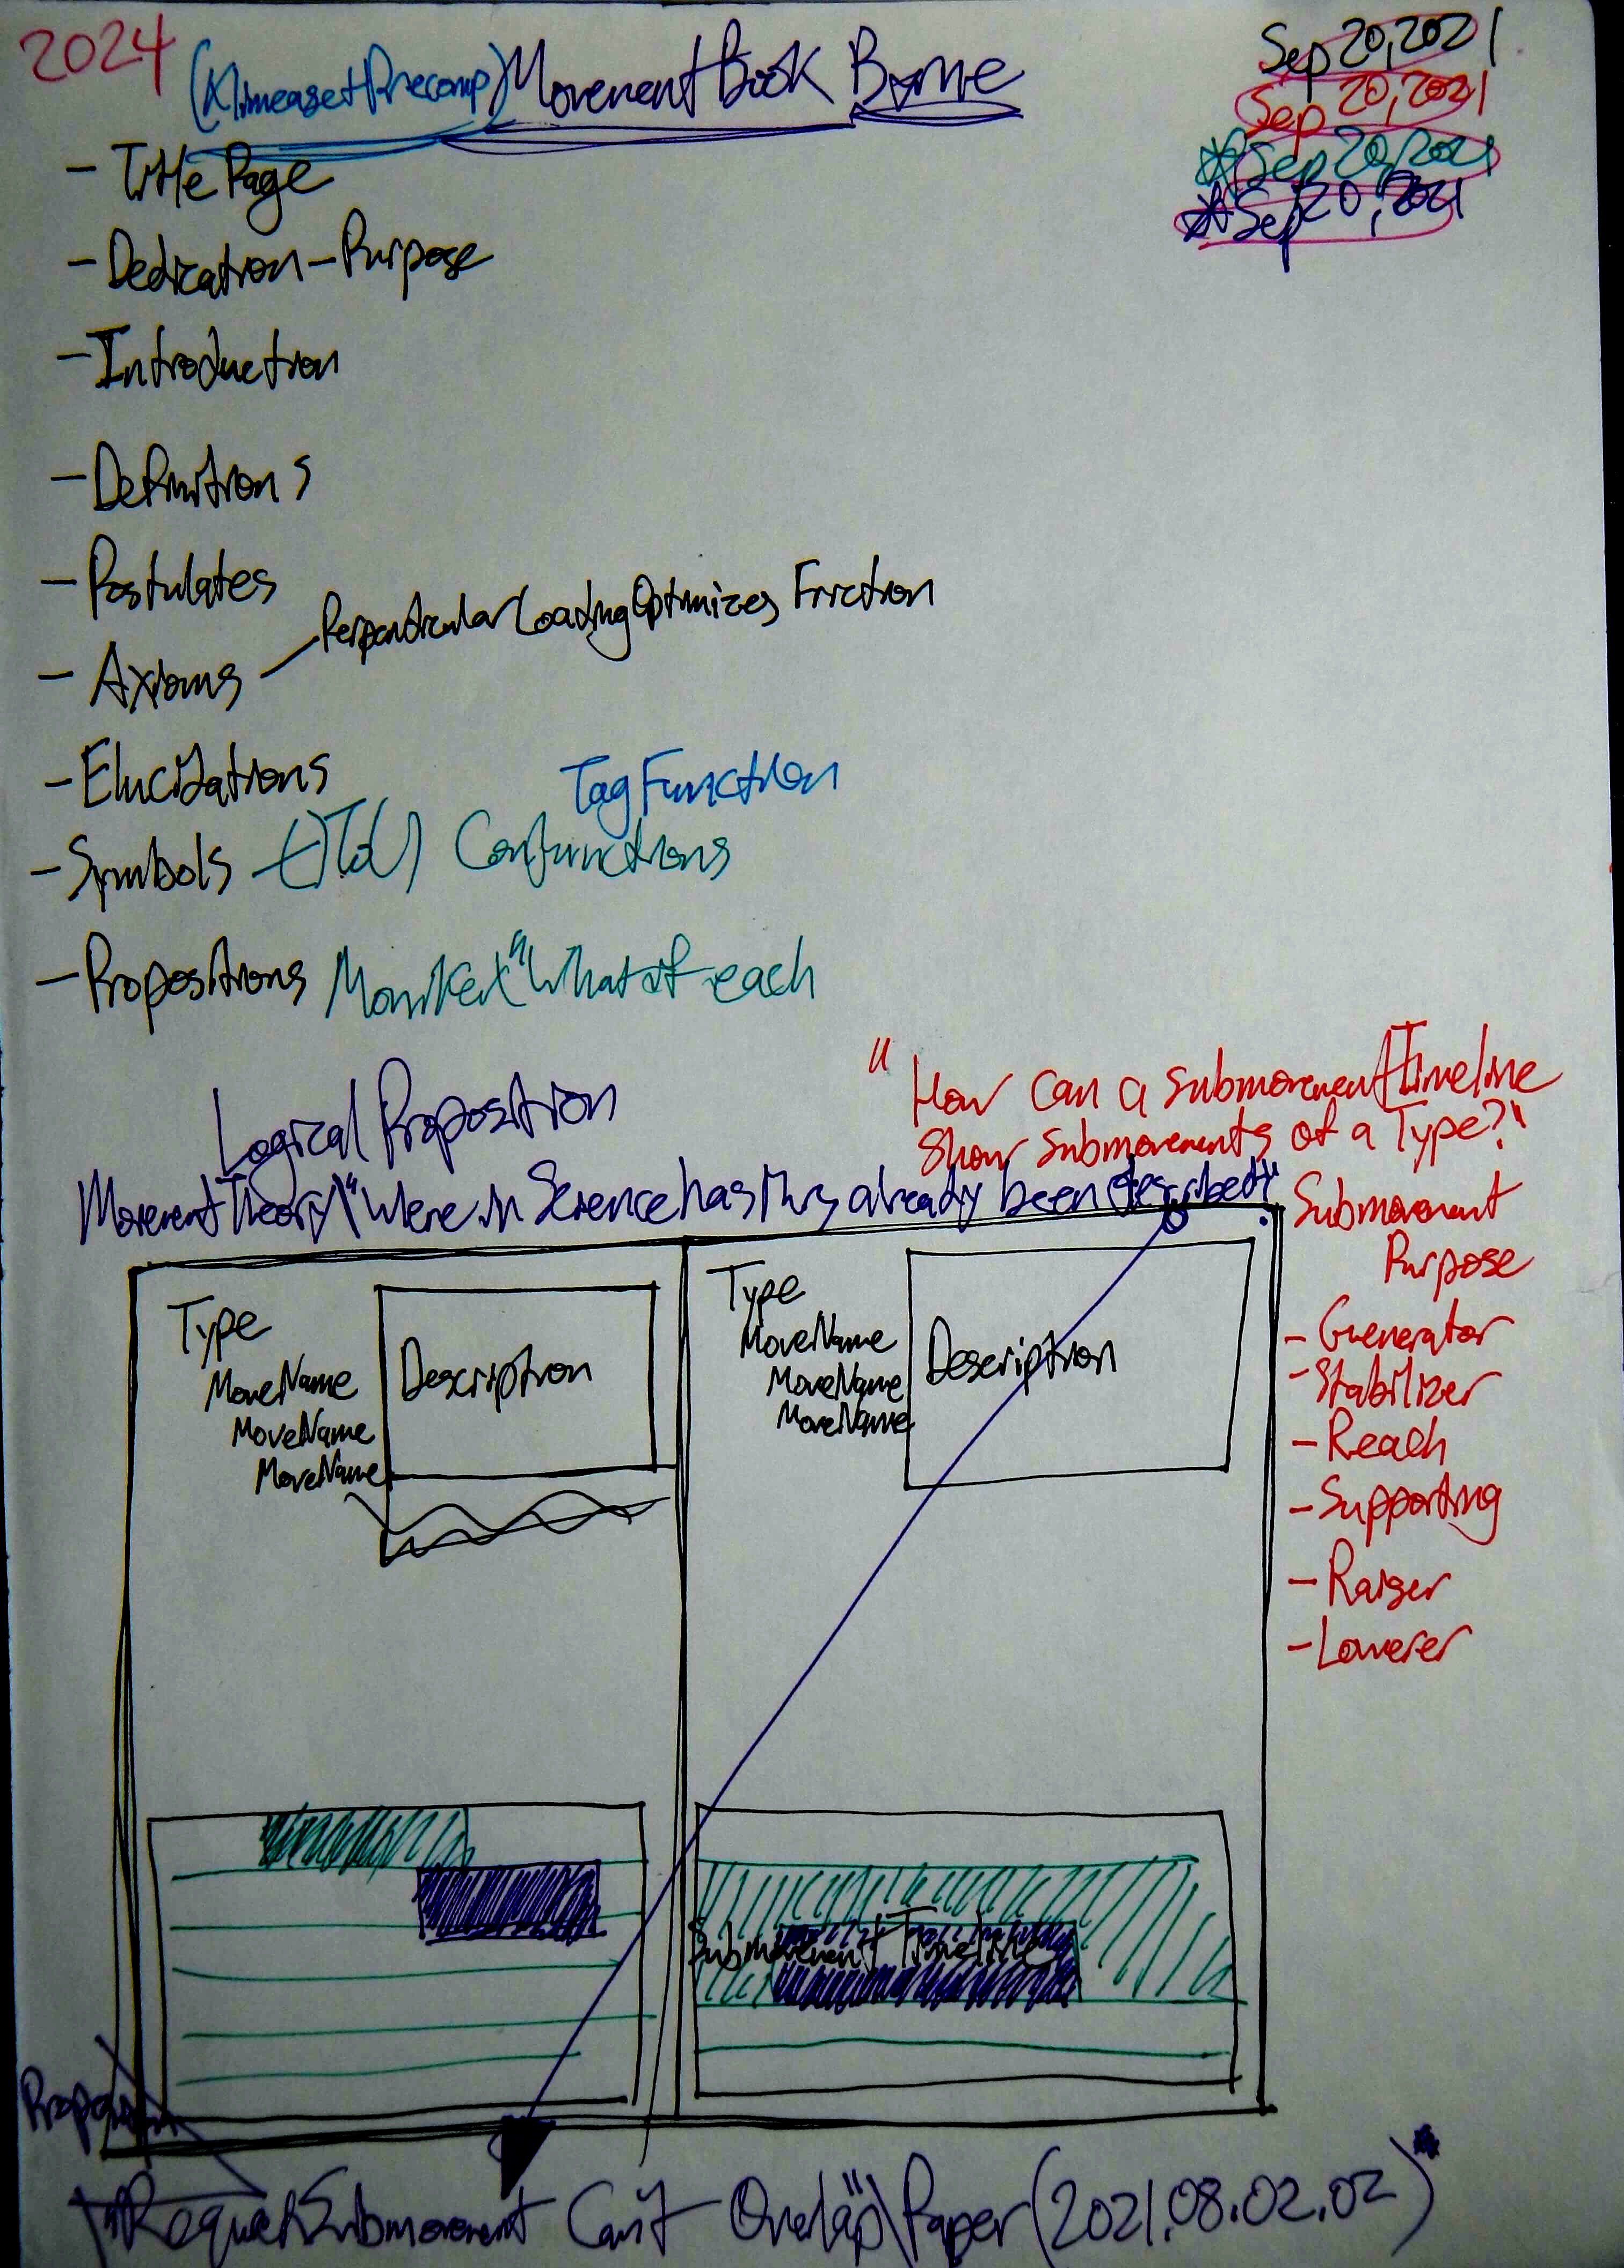 2024
MovementBook Borne
Sep 20, 2021
Sep 20, 2021
*Sep 20, 2021
*Sep 20, 2021
- Title Page
- Dedication - Purpose
- Introduction
- Definitions
- Postulates
- Axioms - Perpendicular Loading Optimizes Friction
- Elucidations
Tag Function
- Symbols
- Propositions Moniker "What of each
Logical Proposition
"How can a submovement Timeline
show submovements of a Type?"
Movement Theory\"Where in Science has this already been described?"
Submovement
Purpose
- Generator
- Stabilizer
- Reach
- Supporting
- Raiser
- Lowerer
Type
MoveName
MoveName
MoveName
Description
Type
MoveName
MoveName
MoveName
Description
Submovement Timeline
Submovement Can't Overlap"\Paper(2021.08.02.02)*